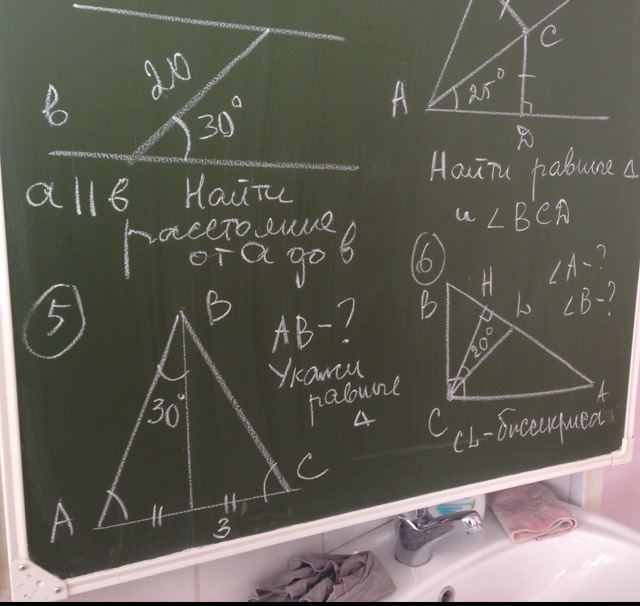 20
в
30°
a || в Найти
расстояние
от a до в
A
C
25°
D
Найти равные Δ
и ∠BCD
5
B
AB-?
Укажи
равные
Δ
30°
A
C
3
6
H
∠A-?
B
L
∠B-?
20°
A
C
CL-биссектриса